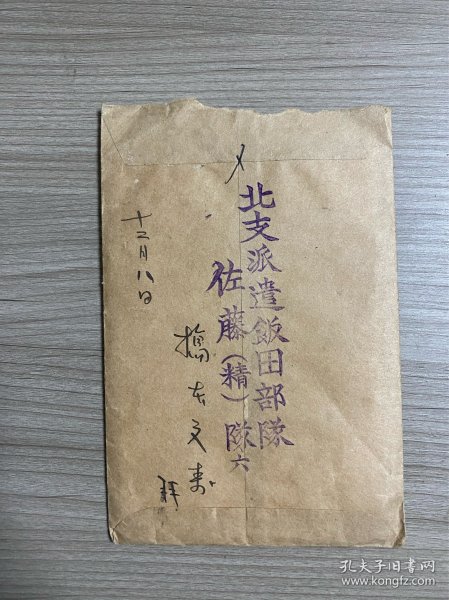 〆
北支派遣飯田部隊
佐藤(精)隊六
橋本文寿
拝
十二月八日
孔夫子旧书网
www.kongfz.com